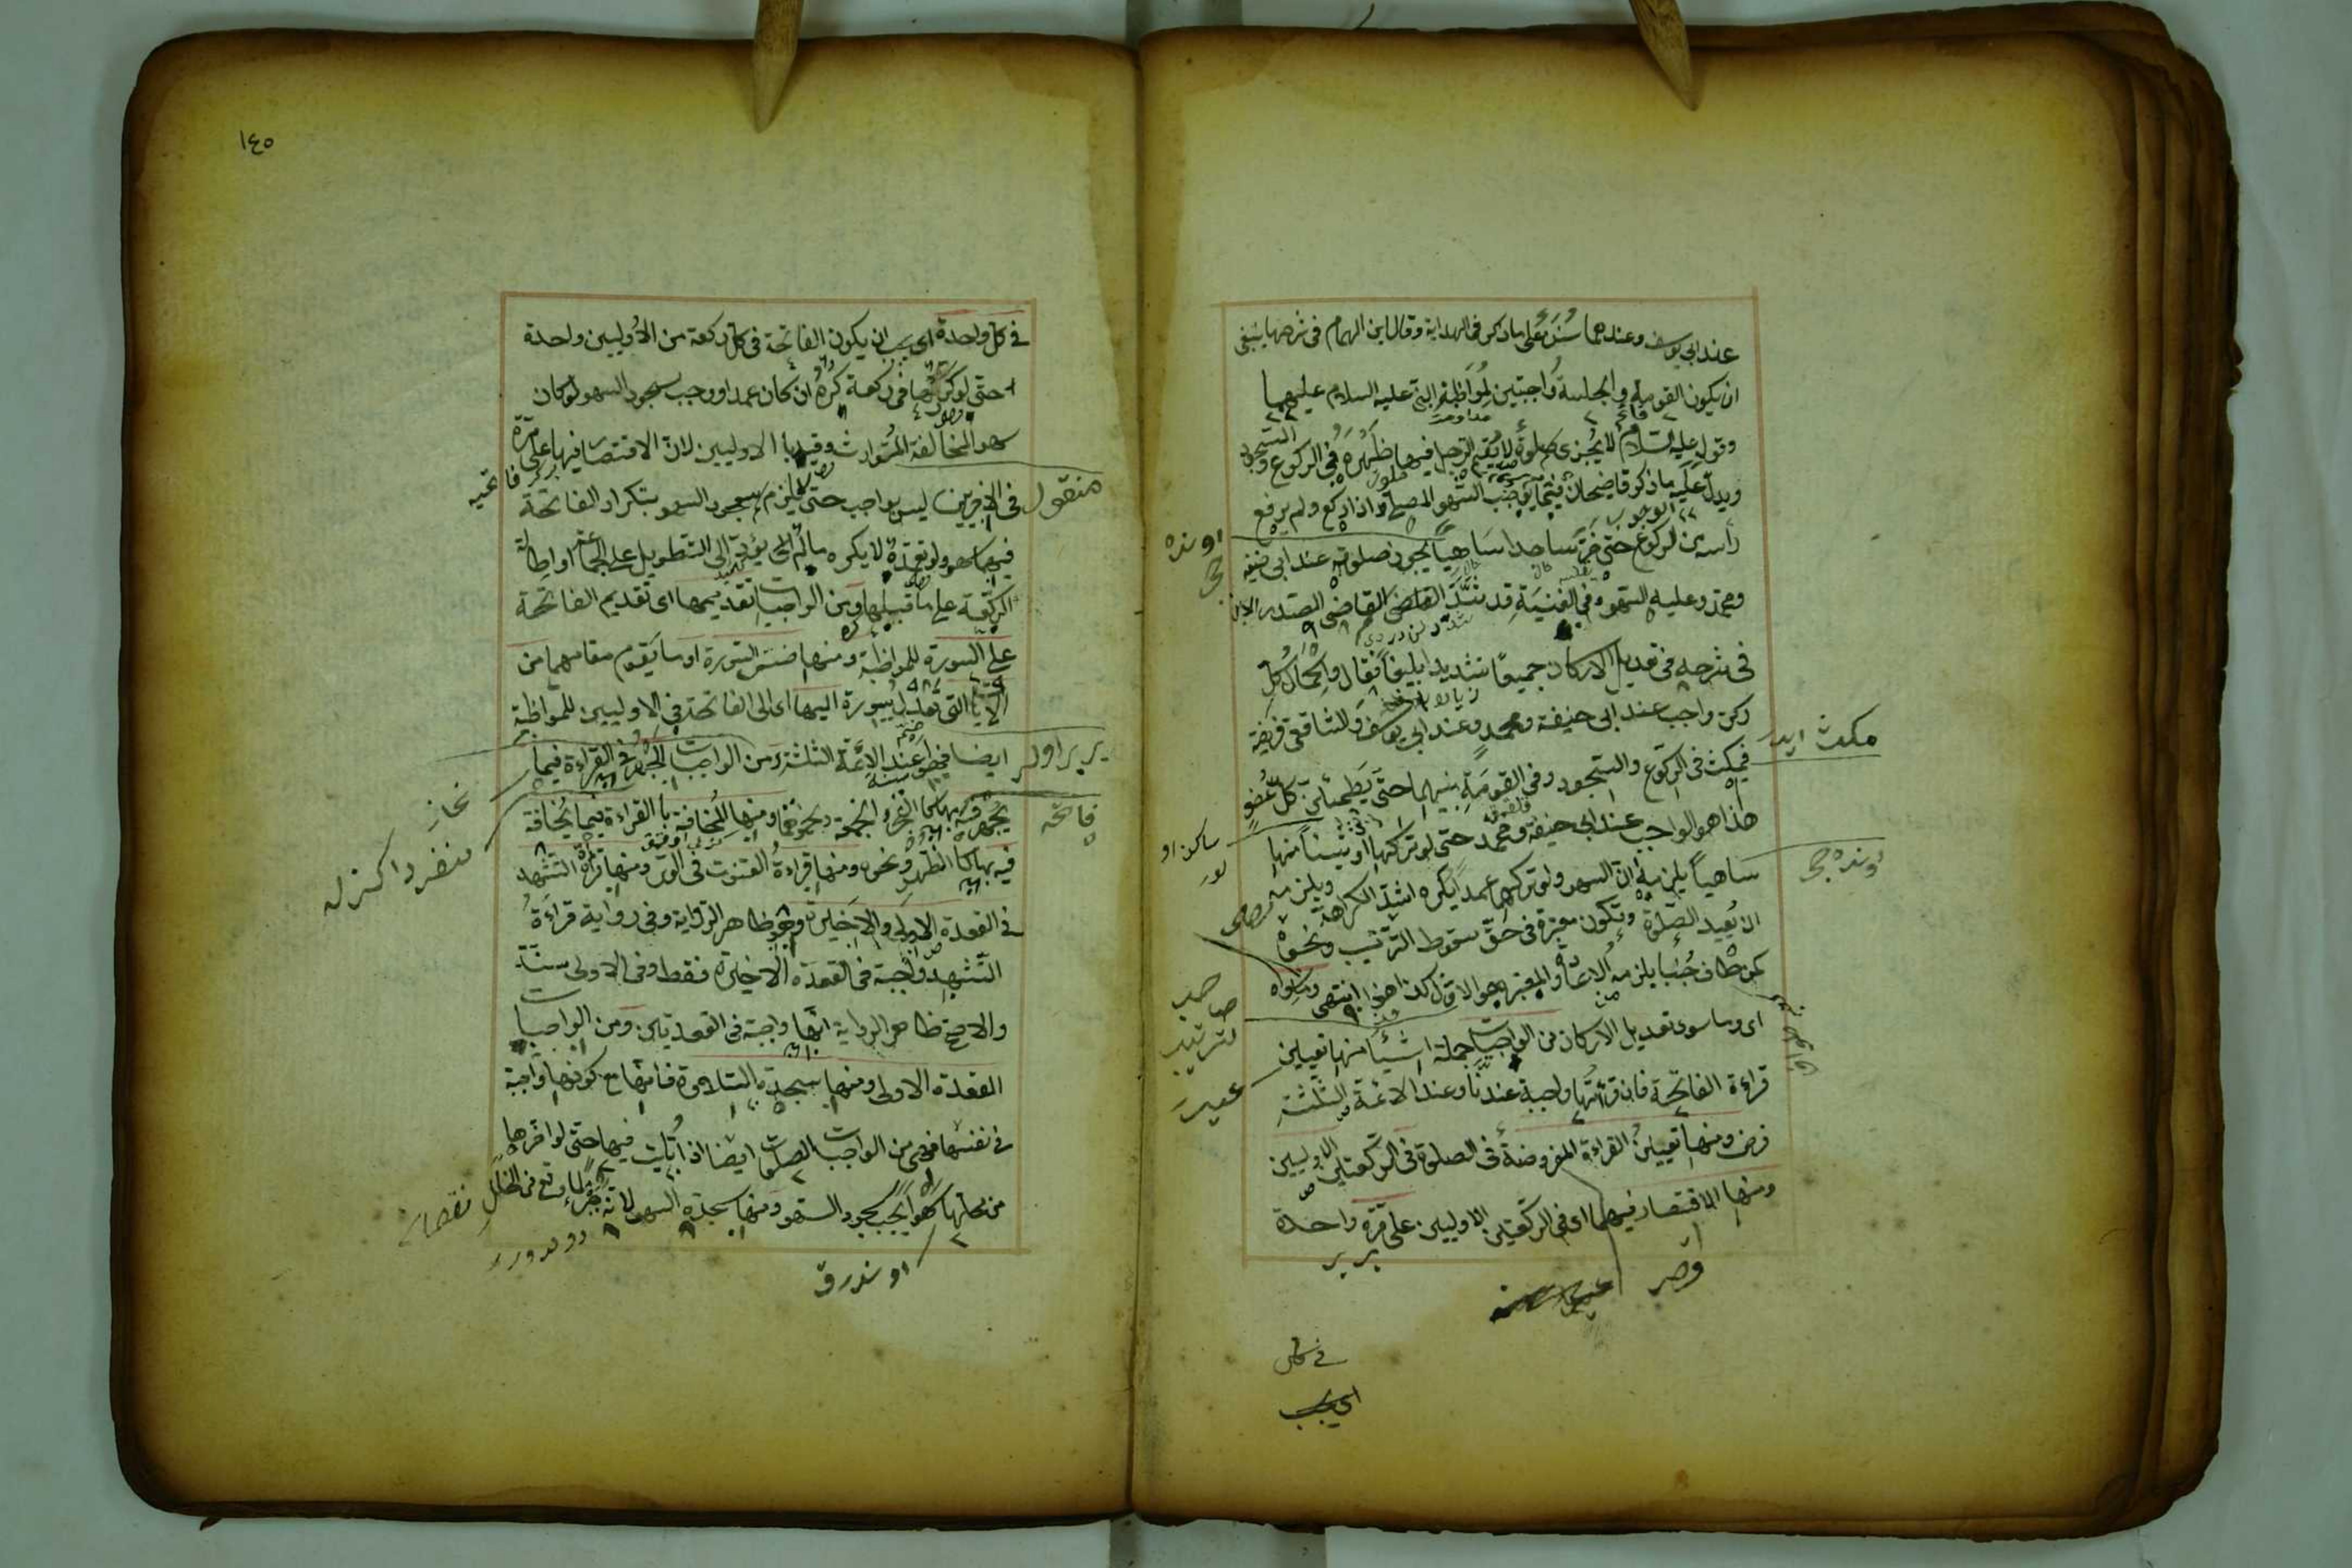 عند ابي يوسف وعندهما سنة على ما ذكر في الهداية وقال ابن الهمام في شرحها ينبغي
ان يكون القومة والجلسة واجبتين لمواظبة النبي عليه السلام عليهما
وقوله عليه السلام لا يجزى صلوة لا يقيم الرجل فيها ظهره في الركوع والسجود
ويدل عليه ما ذكر قاضيخان فيما يوجب السهو المصلي اذا ركع ولم يرفع
رأسه من الركوع حتى خر ساجدا ساهيا يجوز صلوته عند ابي حنيفة
ومحمد وعليه السهو وفي القنية قد شدد القاضي الصدر
في شرحه في تعديل الاركان جميعا تشديدا بليغا فقال واكمال كل
ركن واجب عند ابي حنيفة ومحمد وعند ابي يوسف والشافعي فريضة
فيمكث في الركوع والسجود وفي القومة بينهما حتى يطمئن كل عضو
هذا هو الواجب عند ابي حنيفة ومحمد حتى لو تركها او شيئا منها
ساهيا يلزمه السهو ولو تركها عمدا يكره اشد الكراهة ويلزمه
ان يعيد الصلوة وتكون معتبرة في حق سقوط الترتيب ونحوه
كمن طاف جنبا يلزمه الاعادة والمعتبر هو الاول كذا هذا انتهى وسواه
اى وما سوى تعديل الاركان من الواجبات جملة اشياء منها تعيين
قراءة الفاتحة فان قرائتها واجبة عندنا وعند الائمة الثلثة
فرض ومنها تعيين القراءة المفروضة في الصلوة في الركعتين الاوليين
ومنها الاقتصار فيهما اى في الركعتين الاوليين على مرة واحدة
اونده
مكث ايدر
ساكن او
لور
صاحب
ترتيب
برير
في كل
اى يجب
١٤٥
في كل واحدة اى يجب ان يكون الفاتحة في كل ركعة من الاوليين واحدة
حتى لو كررها في ركعة كره ان كان عمدا ووجب سجود السهو لو كان
سهوا لمخالفة المتوارث وقيد بالاوليين لان الاقتصار فيها على مرة
في الاخريين ليس بواجب حتى لا يلزم سجود السهو بتكرار الفاتحة
فيهما سهوا ولو تعمده لا يكره ما لم يؤد الى التطويل على الجماعة او اطالة
الركعة على ما قبلها ومن الواجبات تقديمها اى تقديم الفاتحة
على السورة للمواظبة ومنها ضم السورة او ما يقوم مقامها من
الآيات التي تعدل سورة اليها اى الى الفاتحة في الاوليين للمواظبة
ايضا فهو عند الائمة الثلثة ومن الواجبات الجهر في القراءة فيما
يجهر فيه بها كالفجر والجمعة ونحوهما ومنها المخافتة بالقراءة فيما يخافت
فيه بها كالظهر ونحوه ومنها قراءة القنوت في الوتر ومنها قراءة التشهد
في القعدة الاولى والاخيرة وهو ظاهر الرواية وفي رواية قراءة
التشهد واجبة في القعدة الاخيرة فقط وفي الاولى سنة
والاصح ظاهر الرواية انها واجبة في القعدتين ومن الواجبات
القعدة الاولى ومنها سجدة التلاوة فانها مع كونها واجبة
في نفسها فهي من الواجبات الصلوة ايضا اذا تليت فيها حتى لو اخرها
من محلها سهوا يجب سجود السهو ومنها سجدة السهو لانه جبر لما وقع من الخلل
منقول
فاتحه
منفردا